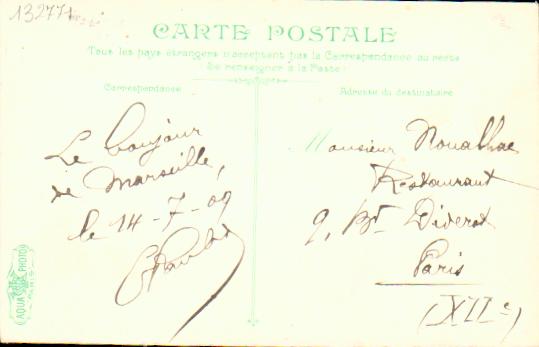 13277
CARTE POSTALE
Tous les pays étrangers n'acceptent pas la Correspondance au recto
Se renseigner à la Poste
Correspondance
Le bonjour
de Marseille,
le 14-7-09
Adresse du destinataire
Monsieur Noualhac
Restaurant
9, Bt Diderot
Paris
(XIIe)
AQUA PHOTO
PARIS